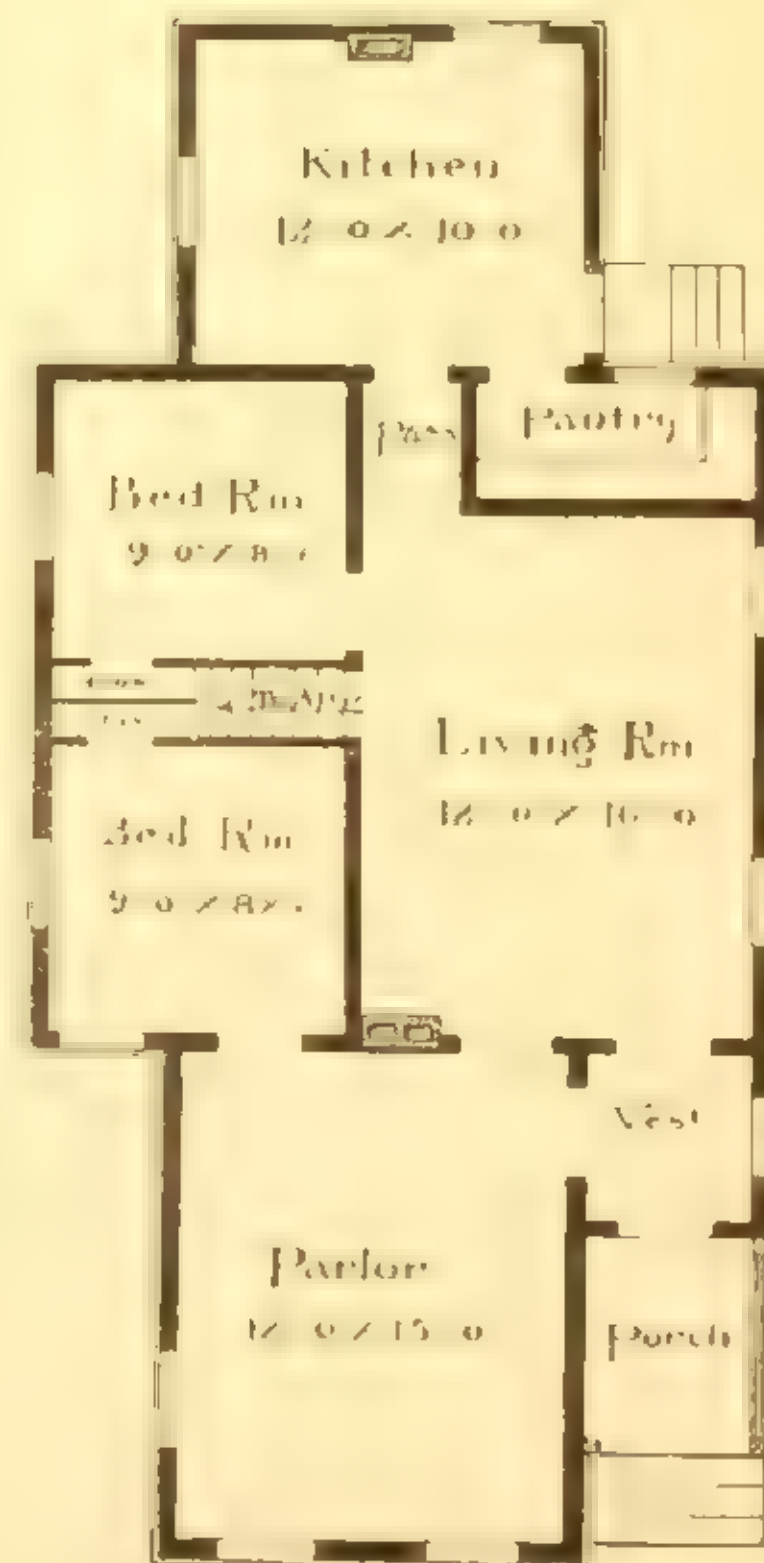 Kitchen
12 0 x 10 0
Pass
Pantry
Bed Rm
9 0 x 8
Living Rm
12 0 x 16 0
Bed Rm
9 0 x 8
Vest
Parlor
12 0 x 15 0
Porch